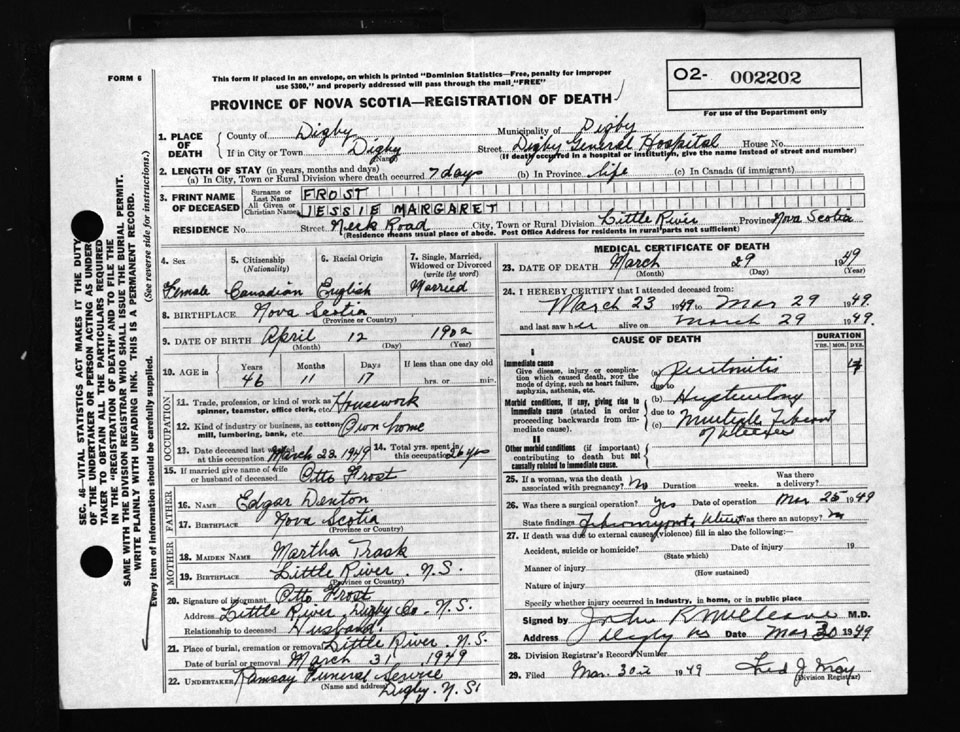 FORM 6
This form if placed in an envelope, on which is printed "Dominion Statistics—Free, penalty for improper
use $300," and properly addressed will pass through the mail "FREE"
O2- 002202
For use of the Department only
PROVINCE OF NOVA SCOTIA—REGISTRATION OF DEATH
1. PLACE OF DEATH
County of Digby
Municipality of Digby
If in City or Town Digby (Name) Street Digby General Hospital House No.
(If death occurred in a hospital or institution, give the name instead of street and number)
2. LENGTH OF STAY (in years, months and days)
(a) In City, Town or Rural Division where death occurred 7 days (b) In Province life (c) In Canada (if immigrant)
3. PRINT NAME OF DECEASED
Surname or Last Name FROST
All Given or Christian Names JESSIE MARGARET
RESIDENCE No. Street Neck Road City, Town or Rural Division Little River Province Nova Scotia
(Residence means usual place of abode. Post Office Address for residents in rural parts not sufficient)
4. Sex
Female
5. Citizenship (Nationality)
Canadian
6. Racial Origin
English
7. Single, Married, Widowed or Divorced (write the word)
Married
8. BIRTHPLACE Nova Scotia
(Province or Country)
9. DATE OF BIRTH April 12 1902
(Month) (Day) (Year)
10. AGE in Years Months Days If less than one day old
46 11 17 hrs. or min.
OCCUPATION
11. Trade, profession, or kind of work as spinner, teamster, office clerk, etc. Housework
12. Kind of industry or business, as cotton mill, lumbering, bank, etc. Own home
13. Date deceased last worked at this occupation March 23, 1949
14. Total yrs. spent in this occupation 26 yrs
15. If married give name of wife or husband of deceased Otto Frost
FATHER
16. NAME Edgar Denton
17. BIRTHPLACE Nova Scotia
(Province or Country)
MOTHER
18. MAIDEN NAME Martha Trask
19. BIRTHPLACE Little River. N.S.
(Province or Country)
20. Signature of informant Otto Frost
Address Little River Digby Co. N.S.
Relationship to deceased Husband.
21. Place of burial, cremation or removal Little River. N.S.
Date of burial or removal March 31 1949
22. UNDERTAKER Ramsay Funeral Service
(Name and address) Digby. N.S.
MEDICAL CERTIFICATE OF DEATH
23. DATE OF DEATH March 29 1949
(Month) (Day) (Year)
24. I HEREBY CERTIFY that I attended deceased from:
March 23 1949 to Mar 29 1949.
and last saw her alive on March 29 1949.
CAUSE OF DEATH
DURATION
YRS. MOS. DYS.
I
Immediate cause
Give disease, injury or complication which caused death, NOT the mode of dying, such as heart failure, asphyxia, asthenia, etc.
(a) Peritonitis
due to
Morbid conditions, if any, giving rise to immediate cause (stated in order proceeding backwards from immediate cause).
Hysterectomy
due to
(c) Multiple
II
Other morbid conditions (if important) contributing to death but not causally related to immediate cause.
25. If a woman, was the death associated with pregnancy? No Duration weeks. Was there a delivery?
26. Was there a surgical operation? Yes Date of operation Mar 25 1949
State findings Was there an autopsy? no
27. If death was due to external causes (violence) fill in also the following:
Accident, suicide or homicide? Date of injury 19
(State which)
Manner of injury
(How sustained)
Nature of injury
Specify whether injury occurred in industry, in home, or in public place
Signed by John R McCleave M.D.
Address Digby NS Date Mar 30 1949
28. Division Registrar's Record Number
29. Filed Mar. 30th 1949 Fred J.
(Division Registrar)
SEC. 46—VITAL STATISTICS ACT MAKES IT THE DUTY
OF THE UNDERTAKER OR PERSON ACTING AS UNDER-
TAKER TO OBTAIN ALL THE PARTICULARS REQUIRED
IN THE "REGISTRATION OF DEATH" AND TO FILE THE
SAME WITH THE DIVISION REGISTRAR WHO SHALL ISSUE THE BURIAL PERMIT.
WRITE PLAINLY WITH UNFADING INK. THIS IS A PERMANENT RECORD.
Every item of information should be carefully supplied. (See reverse side for instructions.)